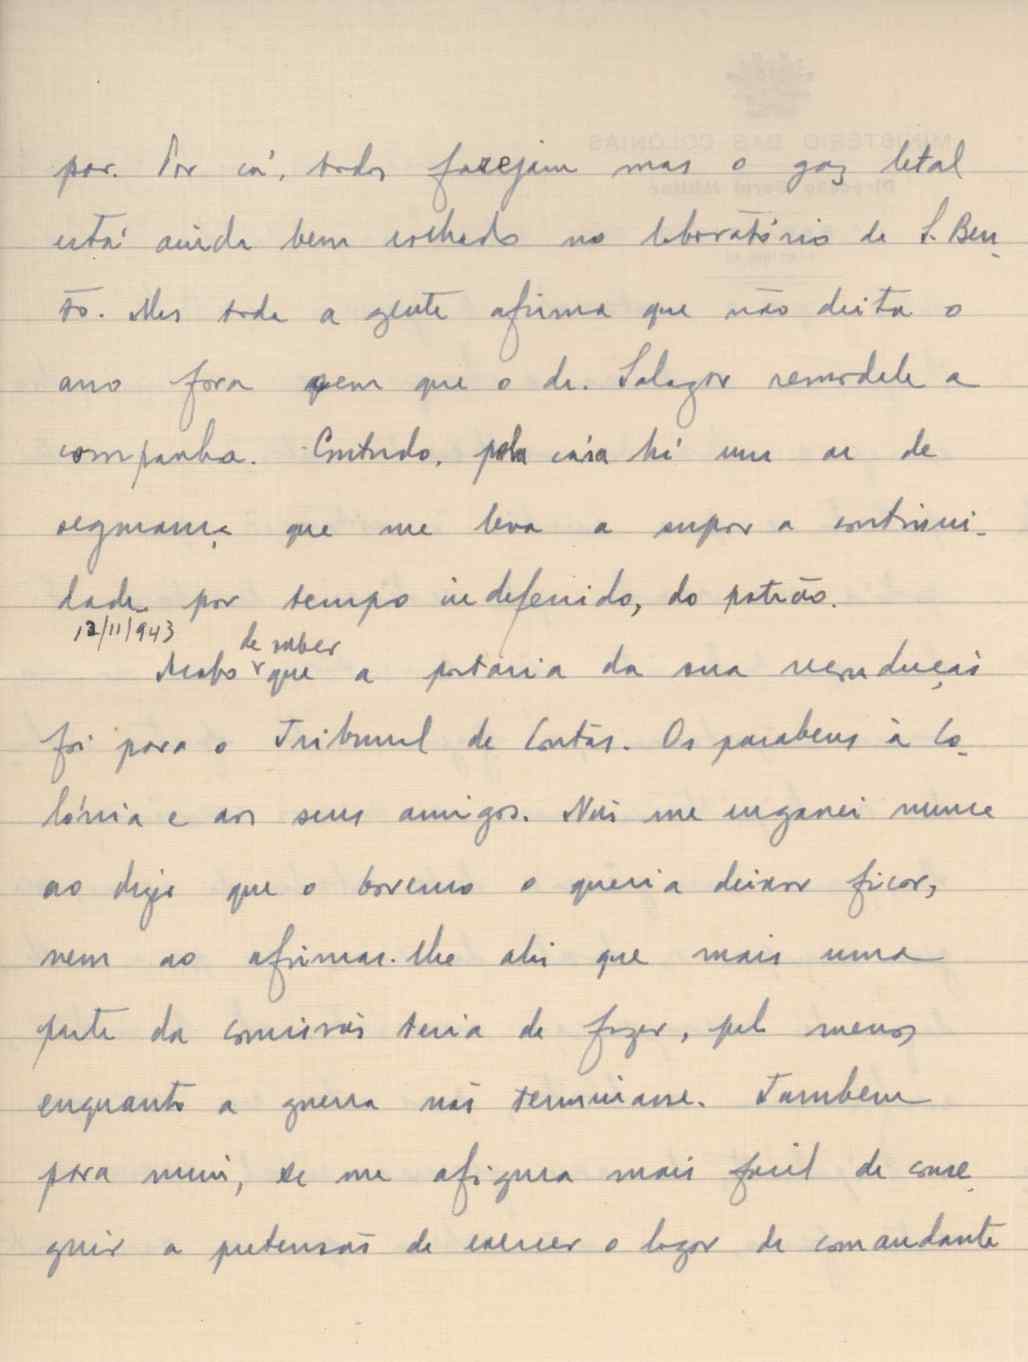 par. Por cá, todos farejam mas o gaz letal
está ainda bem rolhado no laboratório de S. Ben-
to. Mas toda a gente afirma que não deita o
ano fora sem que o dr. Salazar remodele a
companha. Contudo, pela cára há um ar de
segurança que me leva a supor a continui-
dade por tempo indefenido, do patrão.
12/11/943
Acabo de saber que a portaria da sua recondução
foi para o Tribunal de Contas. Os parabens à Co-
lónia e aos seus amigos. Não me enganei nunca
ao dizer que o Governo o queria deixar ficar,
nem ao afirmar-lhe ahi que mais uma
parte da comissão teria de fazer, pelo menos
enquanto a guerra não terminasse. Tambem
para mim, se me afigura mais facil de conse-
guir a pretensão de exercer o lugar de comandante
MINISTÉRIO DAS COLÓNIAS
Direcção Geral Militar